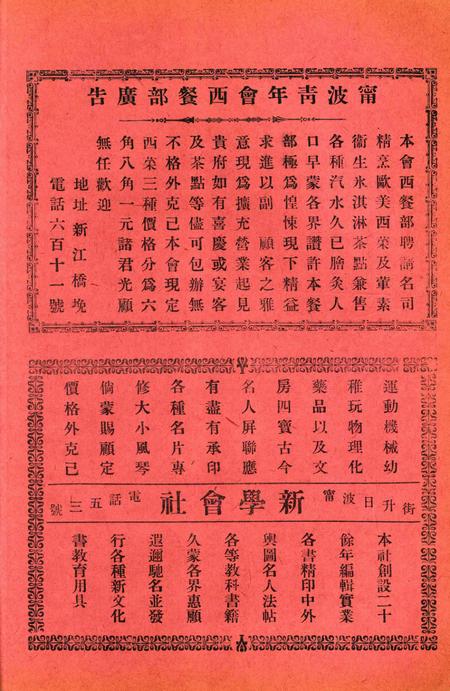 甯波青年會西餐部廣告
本會西餐部聘請名司
精烹歐美西菜及葷素
衞生氷淇淋茶點兼售
各種汽水久已膾炙人
口早蒙各界讚許本餐
部極爲惶悚現下精益
求進以副　顧客之雅
意現爲擴充營業起見
貴府如有喜慶或宴客
及茶點等儘可包辦無
不格外克己本會現定
西菜三種價格分爲六
角八角一元諸君光顧
無任歡迎
地址新江橋堍
電話六百十一號
運動機械幼
稚玩物理化
藥品以及文
房四寶古今
名人屏聯應
有盡有承印
各種名片專
修大小風琴
倘蒙賜顧定
價格外克己
甯波日升街
新學會社
電話五三號
本社創設二十
餘年編輯實業
各書精印中外
輿圖名人法帖
各等教科書籍
久蒙各界惠顧
遐邇馳名並發
行各種新文化
書教育用具